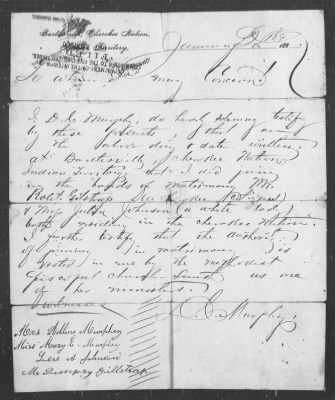 Bartlesville, Cherokee Nation,
Indian Territory,
January
To whom may Concern
I D. C. Murphy, do hereby certify
by these presents, that on
the above day & date written
at Bartlesville Cherokee Nation
Indian Territory that I did join
in the bonds of matrimony Mr.
Robt. Gilstrap
& Miss Julia Johnson (a white lady)
both residing in the Cherokee Nation.
I further certify that the authority
of joining in matrimony is
vested in me by the Methodist
Episcopal Church South as one
of her ministers.
Witnesses
D. C. Murphy.
Mrs Adline Murphey
Miss Mary E. Murphey
A Johnson
Mr Dempsey Gillstrap